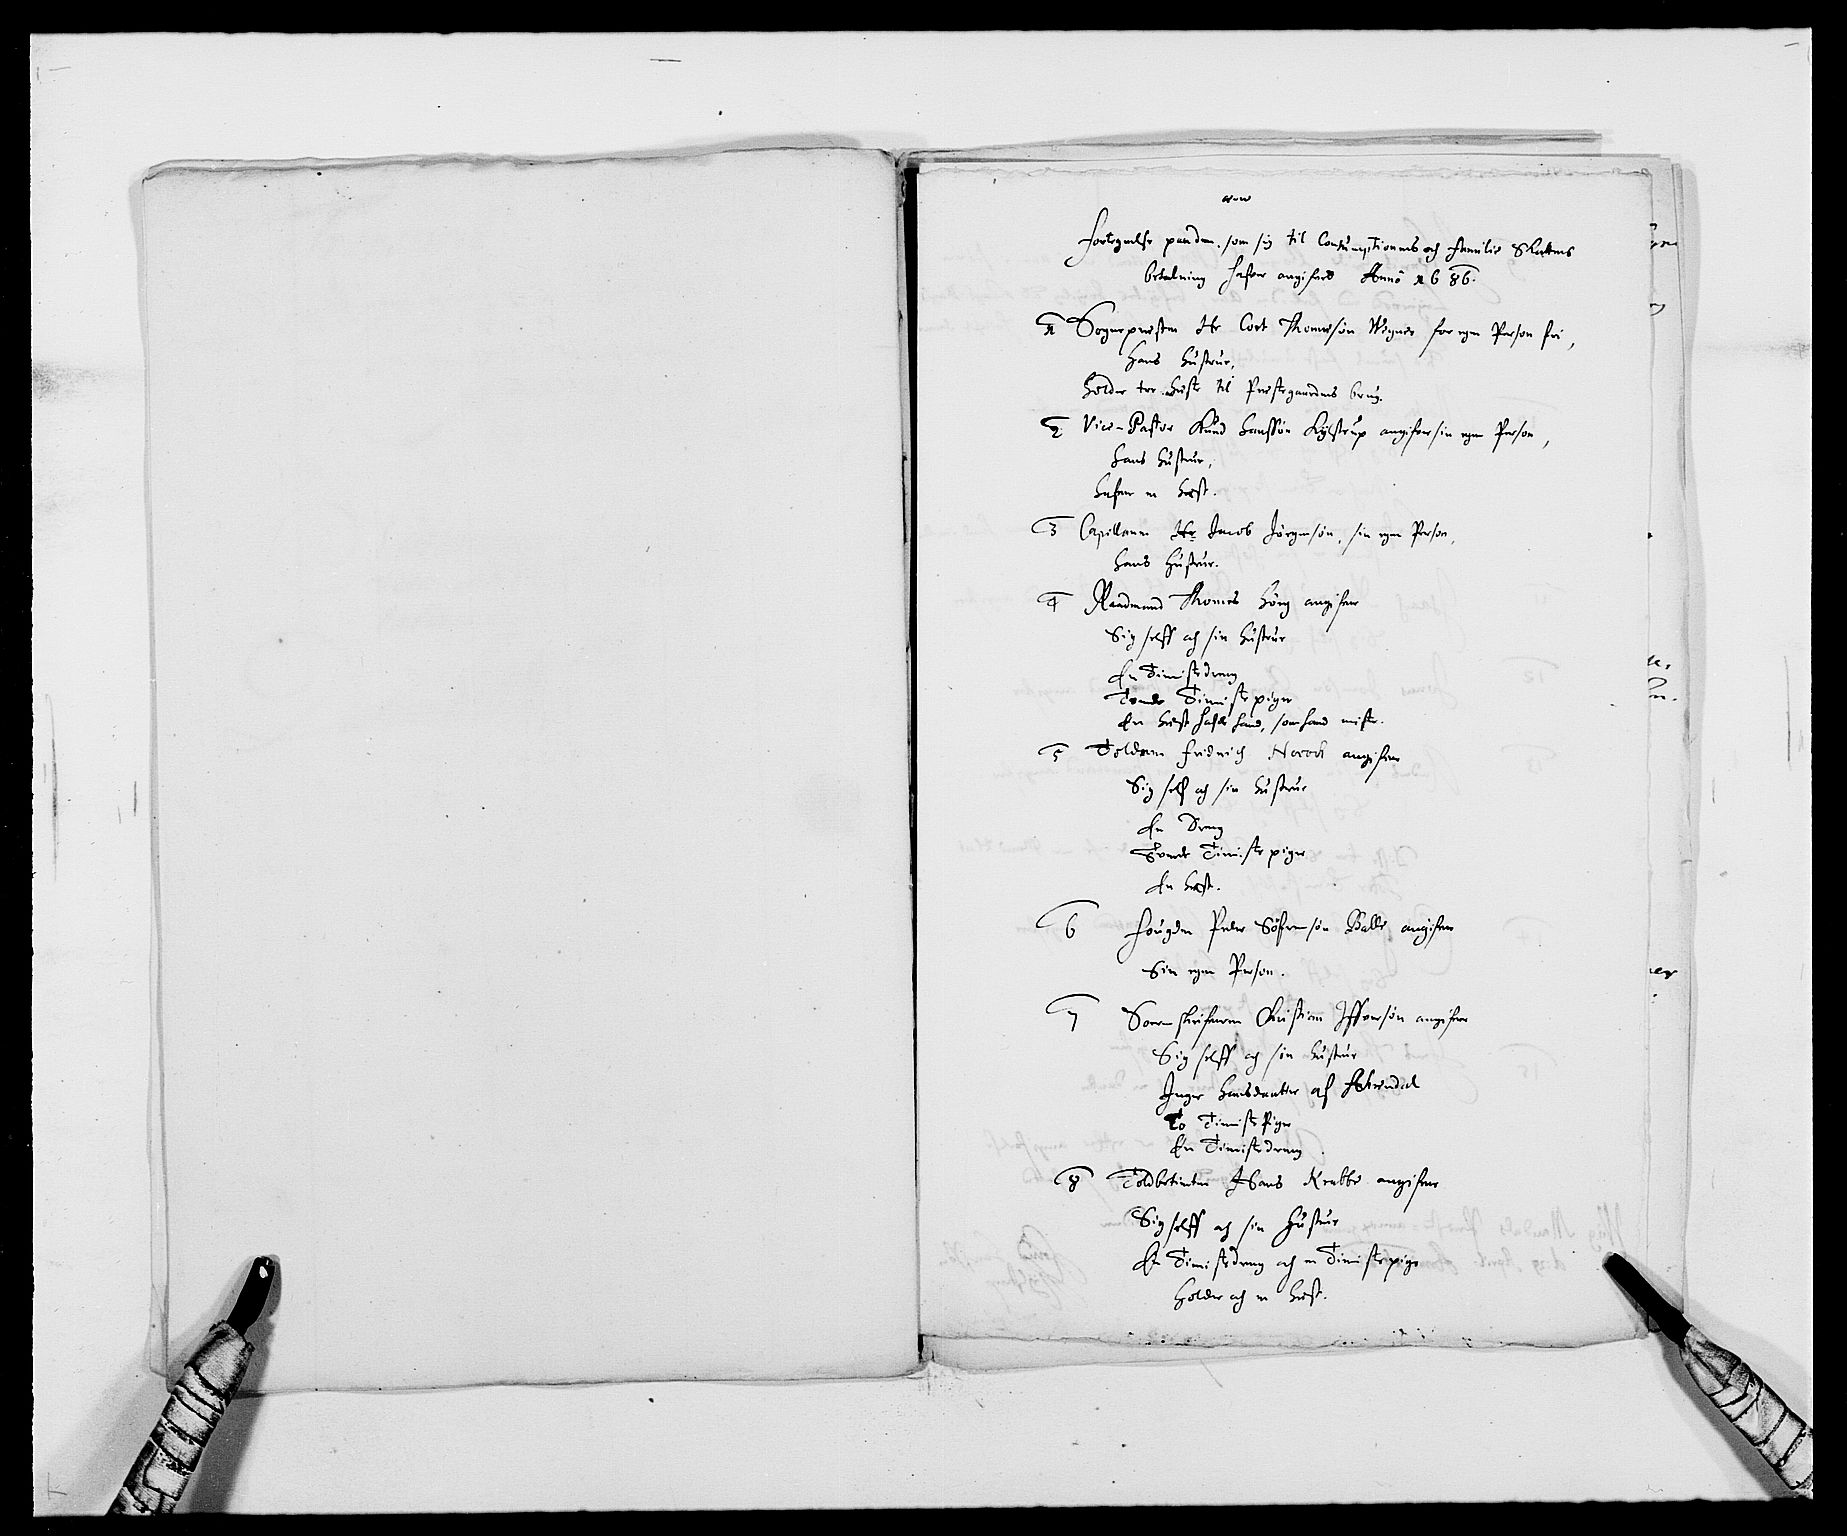 Fortegnelse paa dem, som sig til Consumptionens och Familie Skattens
betalning hafver angifved Anno 1686.
1 Sognepresten Hr Cort Thomesøn Wegner for egen Person fri,
Hans Hustrue,
Holder tre Heste til Prestegaardens brug.
2 Vice-Pastor Knud Hanssøn Kylstrup angifver sin egen Person,
Hans Hustrue,
Hafver en Hest.
3 Capellanen Hr Jacob Jørgensøn, sin egen Person,
Hans Hustrue.
4 Raadmand Thomes angifver
Sig selff och sin Hustrue
En Tienistedreng
Tvende Tieniste piger
En Hest hafde hand, som hand miste.
5 Tolderen Fridrich angifver
Sig self och sin Hustrue
En Dreng
Tvende Tieniste piger
En Hest.
6 Fougden Peder Søfrensøn Balle angifver
Sin egen Person.
7 Sorenskrifveren Christian Iffversøn angifver
Sig selff och sin Hustrue
Inger Hansdaatter af Arendal
To Tieniste Piger
En Tienistedreng.
8 Toldbetienten Hans Krabbe angifver
Sig selff och sin Hustrue
En Tienistedreng och en Tienistepige
Holder och en Hest.